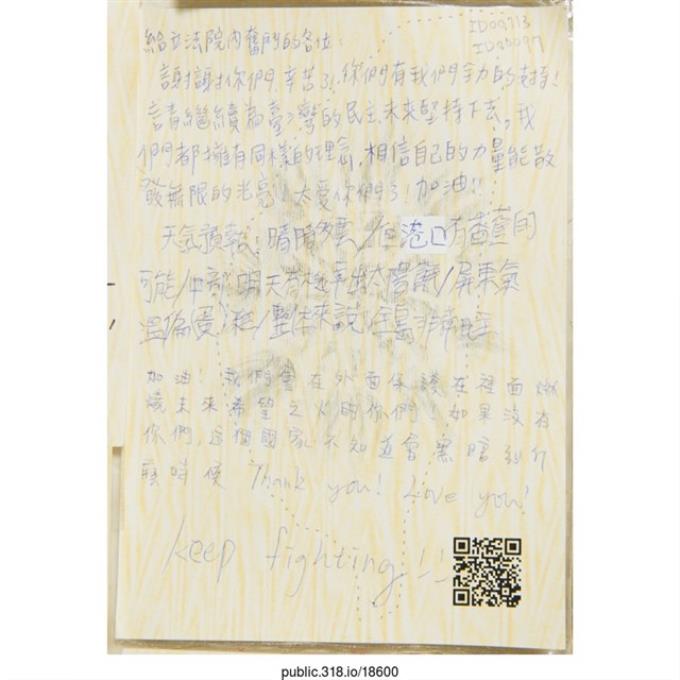 ID09713
ID05097
給立法院內奮鬥的各位:
謝謝你們, 辛苦了! 你們有我們全力的支持!
請繼續為臺灣的民主、未來堅持下去, 我
們都擁有同樣的理念, 相信自己的力量能散
發無限的光亮! 太愛你們了! 加油!!
天氣預報: 晴時多雲/但港口有
可能/中部明天 太陽 /屏東氣
溫偏 /整体來說/全島非常
加油! 我們會在外面保護在裡面燃
燒未來希望之火的你們, 如果沒有
你們, 這個國家不知道會黑暗到什
麼時候 Thank you! Love you!
keep fighting!!
public.318.io/18600